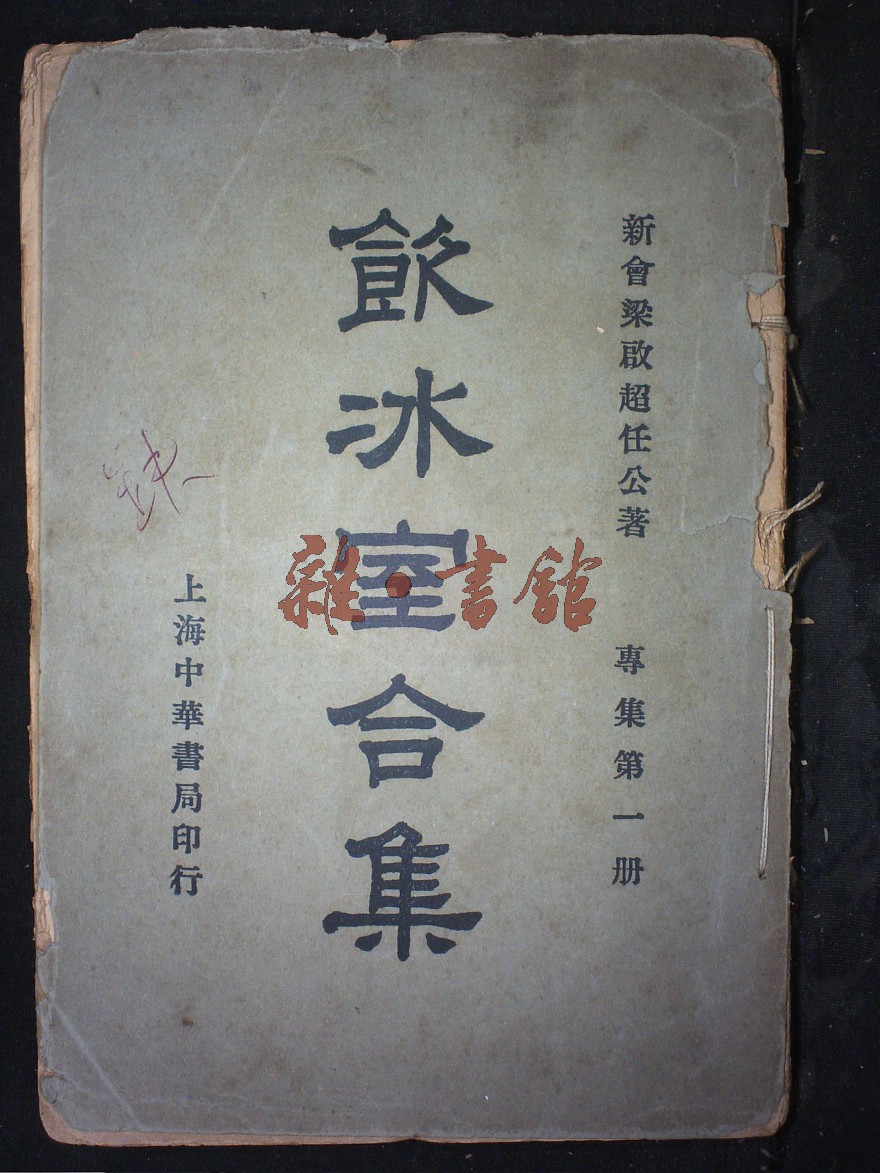 新會梁啟超任公著
專集第一册
飲冰室合集
上海中華書局印行
雜·書館